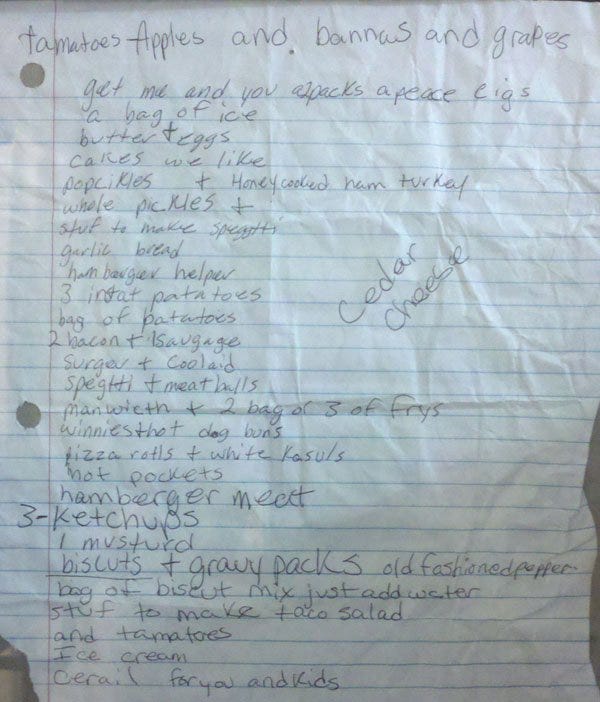 tamatoes Apples and. bannas and grapes
get me and you a2packs apeace cigs
a bag of ice
butter + eggs
cakes we like
popcikles + Honeycooked ham turkey
whole pickles +
stuf to make spegtti
garlic bread
hamberger helper
3 instat patatoes
bag of patatoes
Cedar
cheese
2 bacon + 1saugage
surger + coolaid
speghti + meatballs
manwicth + 2 bag or 3 of frys
winnies+hot dog buns
pizza rolls + white kasuls
hot pockets
hamberger meat
3-ketchups
1 musturd
biscuts + gravy packs old fashioned pepper-
bag of biscut mix just add water
stuf to make taco salad
and tamatoes
Ice cream
cerail for you and kids